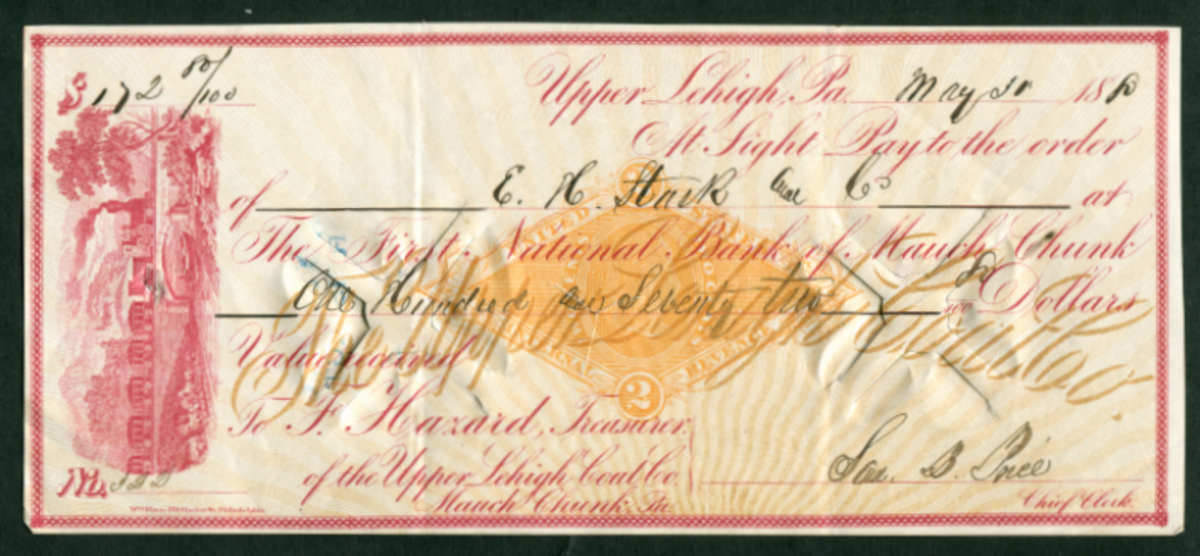 $ 172 80/100
Upper Lehigh, Pa. May 31 188
At Sight Pay to the order
of E. H. Stark and Co at
The First National Bank of Mauch Chunk
One Hundred and Seventy two Dollars
Value received
UNITED STATES INTERNAL REVENUE
2
To F. Hazard, Treasurer
of the Upper Lehigh Coal Co.
Mauch Chunk, Pa.
Sam. B. Price
Chief Clerk
No.